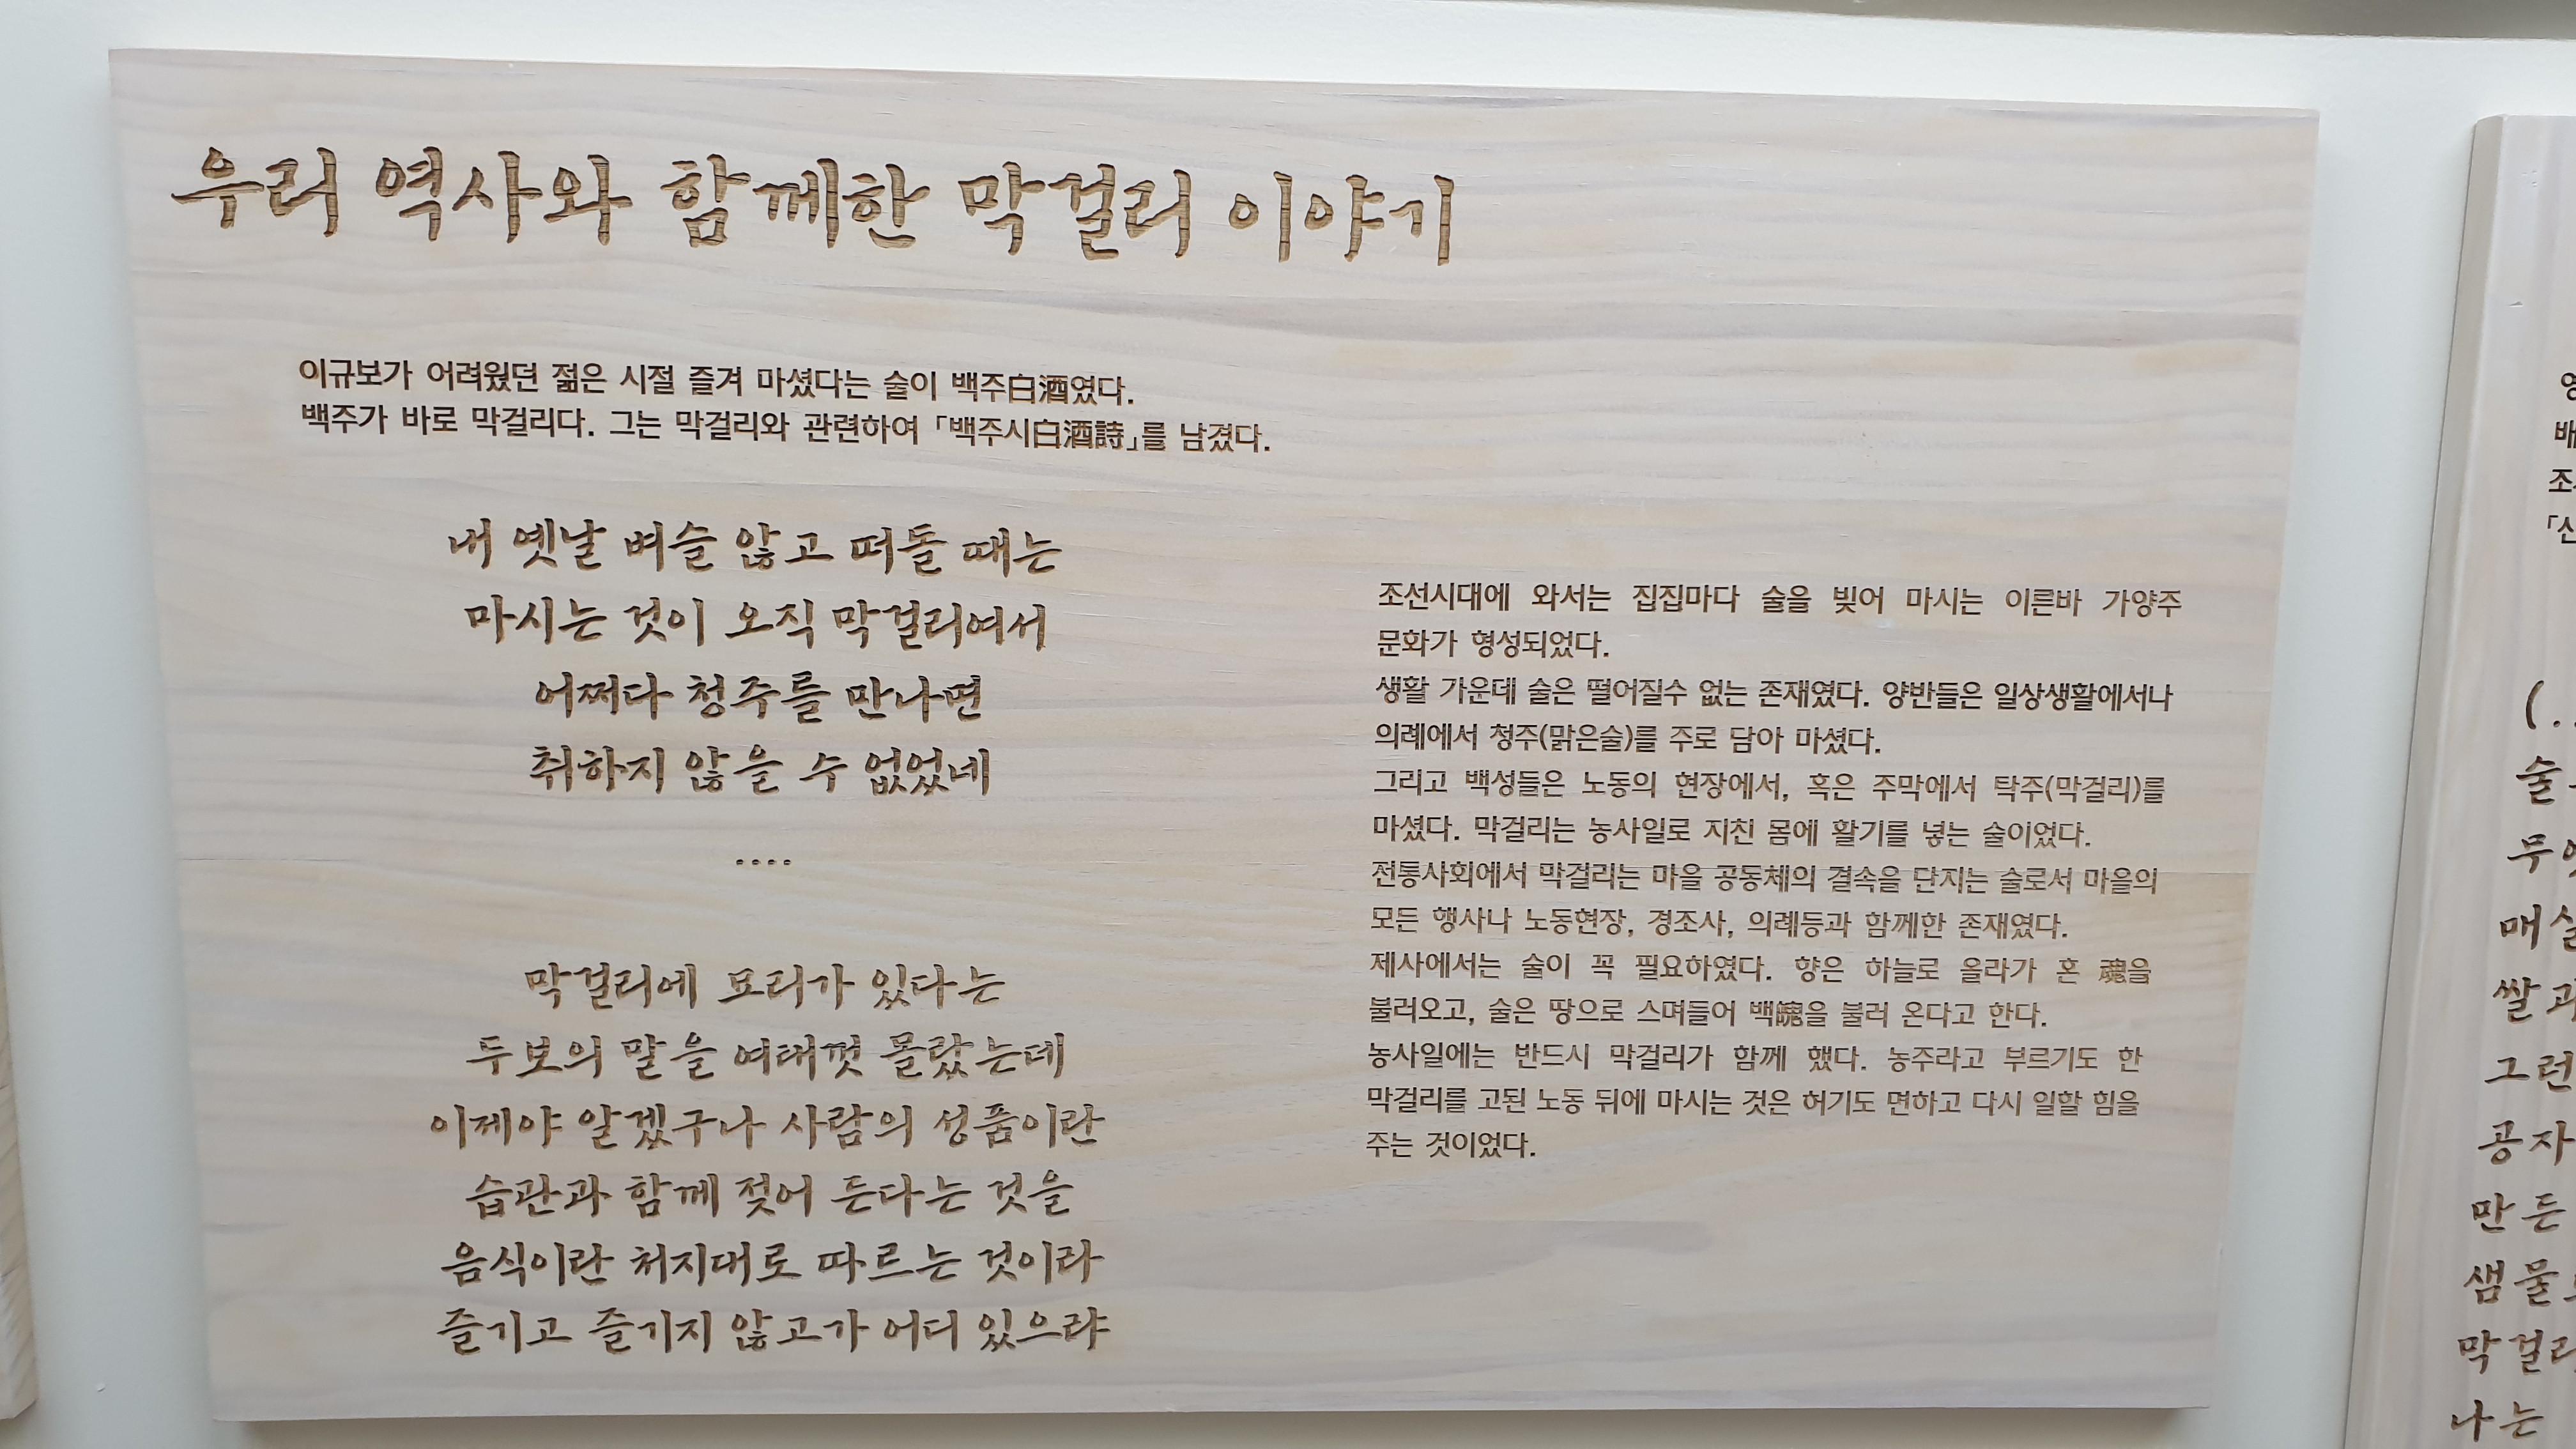 우리 역사와 함께한 막걸리 이야기
이규보가 어려웠던 젊은 시절 즐겨 마셨다는 술이 백주白酒였다.
백주가 바로 막걸리다. 그는 막걸리와 관련하여 「백주시白酒詩」를 남겼다.
내 옛날 벼슬 않고 떠돌 때는
마시는 것이 오직 막걸리여서
어쩌다 청주를 만나면
취하지 않을 수 없었네
....
막걸리에 묘리가 있다는
두보의 말을 여태껏 몰랐는데
이제야 알겠구나 사람의 성품이란
습관과 함께 젖어 든다는 것을
음식이란 처지대로 따르는 것이라
즐기고 즐기지 않고가 어디 있으랴
조선시대에 와서는 집집마다 술을 빚어 마시는 이른바 가양주
문화가 형성되었다.
생활 가운데 술은 떨어질수 없는 존재였다. 양반들은 일상생활에서나
의례에서 청주(맑은술)를 주로 담아 마셨다.
그리고 백성들은 노동의 현장에서, 혹은 주막에서 탁주(막걸리)를
마셨다. 막걸리는 농사일로 지친 몸에 활기를 넣는 술이었다.
전통사회에서 막걸리는 마을 공동체의 결속을 단지는 술로서 마을의
모든 행사나 노동현장, 경조사, 의례등과 함께한 존재였다.
제사에서는 술이 꼭 필요하였다. 향은 하늘로 올라가 혼 魂을
불러오고, 술은 땅으로 스며들어 백魄을 불러 온다고 한다.
농사일에는 반드시 막걸리가 함께 했다. 농주라고 부르기도 한
막걸리를 고된 노동 뒤에 마시는 것은 허기도 면하고 다시 일할 힘을
주는 것이었다.
(..
술
매실
쌀과
그런
공자
만든
샘물
막걸리
나는